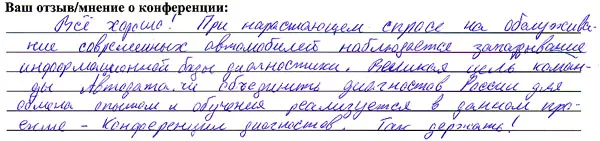 Ваш отзыв/мнение о конференции:
Всё хорошо! При нарастающем спросе на обслужива-
ние современных автомобилей наблюдается запаздывание
информационной базы диагностики. Великая цель коман-
ды Автодата.ru объединить диагностов России для
обмена опытом и обучения реализуется в данном про-
екте - Конференции диагностов. Так держать!